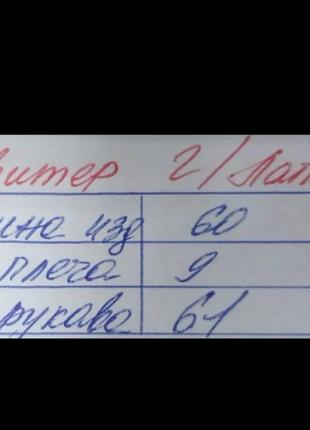 итер 2/Пат
ина изд 60
плеча 9
рукава 61